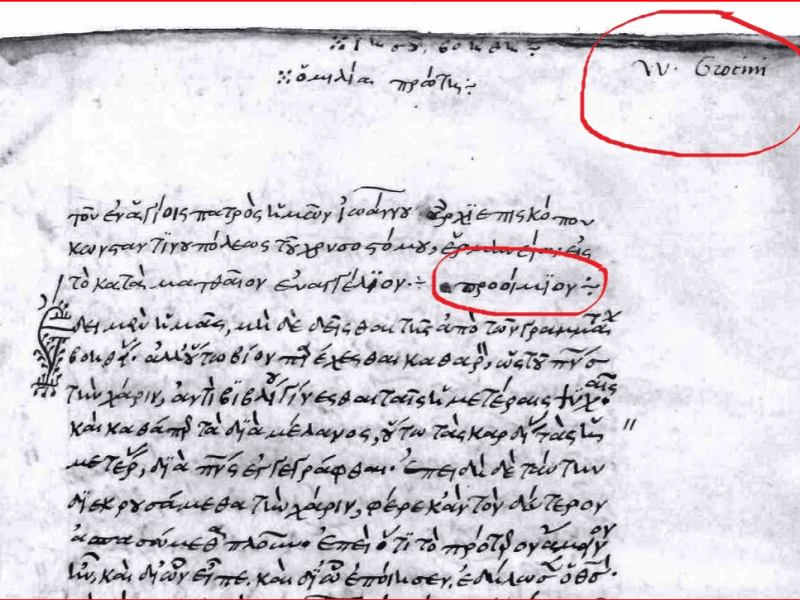 W. Grocini
ὁμιλία πρώτη
τοῦ ἐν ἁγίοις πατρὸς ἡμῶν ἰωάννου ἀρχιεπισκόπου
κωνσταντινουπόλεως τοῦ χρυσοστόμου, εἰς
τὸ κατὰ ματθαῖον εὐαγγέλιον προοίμιον
ἔδει μὲν ἡμᾶς, μὴ δὲ δεῖσθαι τῆς ἀπὸ τῶν γραμμάτων
βοηθείας ἀλλ' οὕτω βίον παρέχεσθαι καθαρὸν, ὡς τοῦ πνς
τὴν χάριν, ἀντὶ βιβλίων γίνεσθαι ταῖς ἡμετέραις ψυχαῖς
καὶ καθάπερ ταῦτα διὰ μέλανος, οὕτω τὰς καρδίας τὰς ἡ
μετέρας, διὰ πνς ἐγγεγράφθαι. ἐπειδὴ δὲ ταύτην
διεκρουσάμεθα τὴν χάριν, φέρε κἂν τὸν δεύτερον
ἀσπασώμεθα πλοῦν. ἐπεὶ ὅτι τὸ πρότερον ἄμεινον
ἦν, καὶ δι' ὧν εἶπε, καὶ δι' ὧν ἐποίησεν, ἐδήλωσεν ὁ θς.